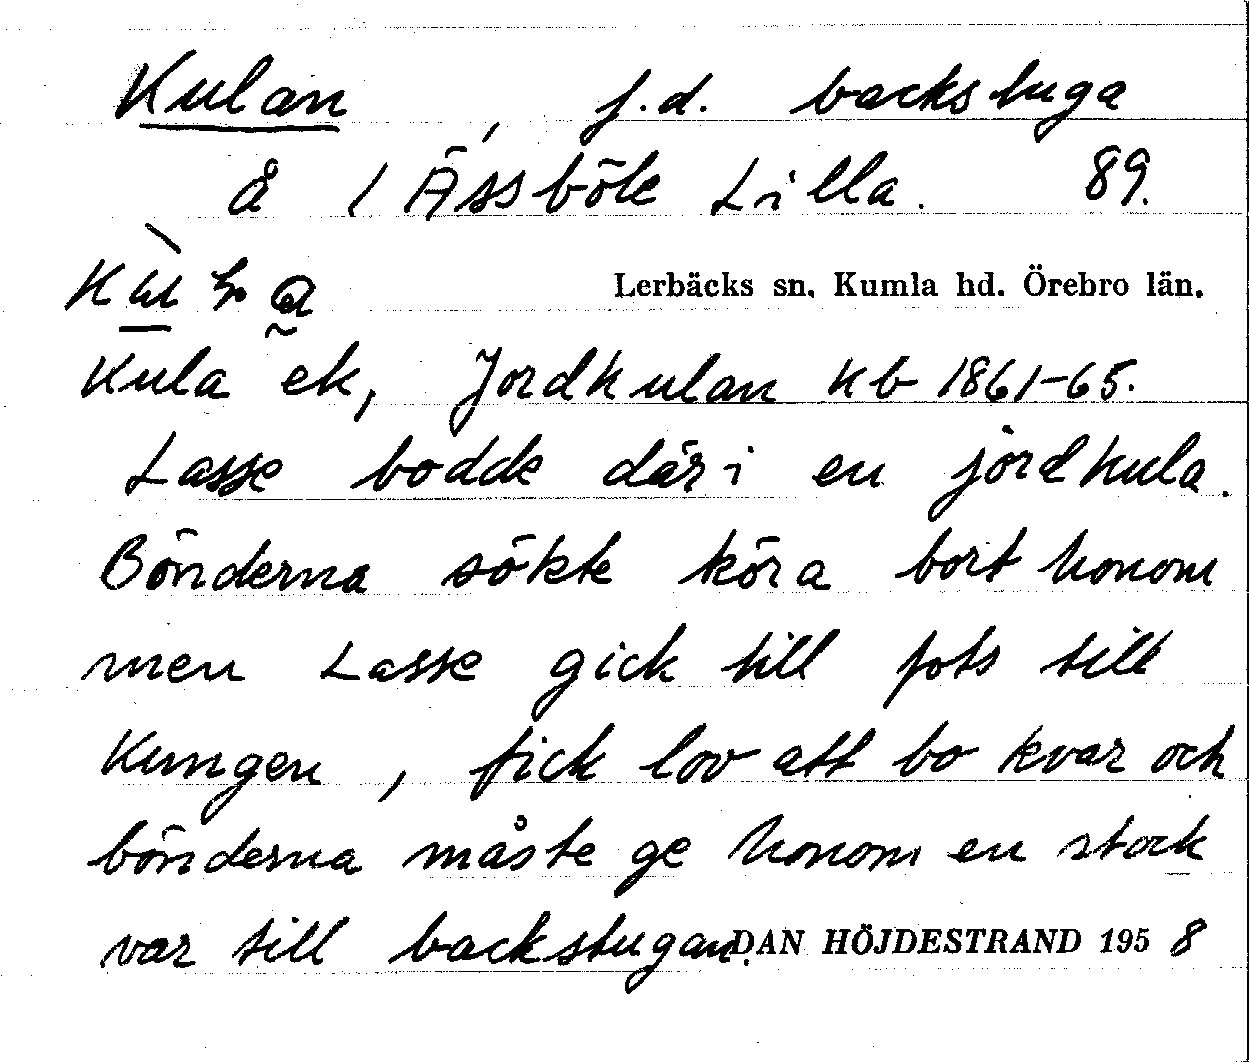 Kulan, f.d. backstuga
å 1 Ässböle Lilla. 89.
Lerbäcks sn, Kumla hd. Örebro län.
Kula ek, Jordkulan kb 1861-65.
Lasse bodde där i en jordkula.
Bönderna sökte köra bort honom
men Lasse gick till fots till
Kungen, fick lov att bo kvar och
bönderna måste ge honom en stock
var till backstugan.
DAN HÖJDESTRAND 1958